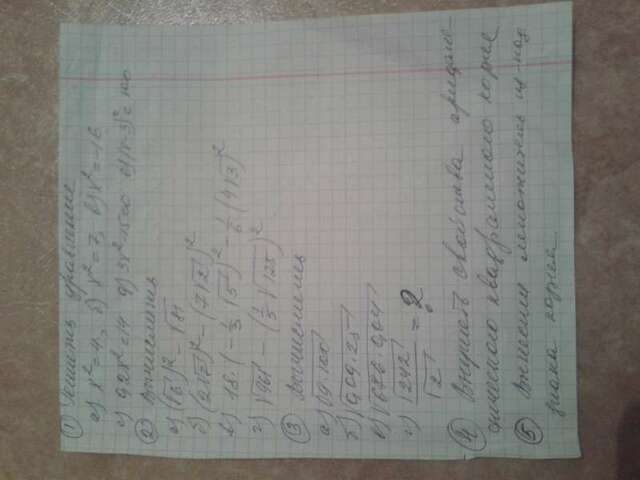 ① Решить уравнения
а) x²=4, б) x²=7, в) x²=-16
г) 92x²=14 д) 3x²-1500 е) (x-3)²=100
② Вычислить
а) (√6)²-√81
б) (2√7)²-(7√2)²
в) 18·(-1/3 √5)²-1/6(4√3)²
г) √961-(1/5√125)²
③ Вычислить
а) √9·100
б) √0,09·25
в) √676·0,04
г) √242/√2 = ?
④ Выучить свойства арифме-
тического квадратного корня
⑤ Вынесем множитель из-под
знака корня